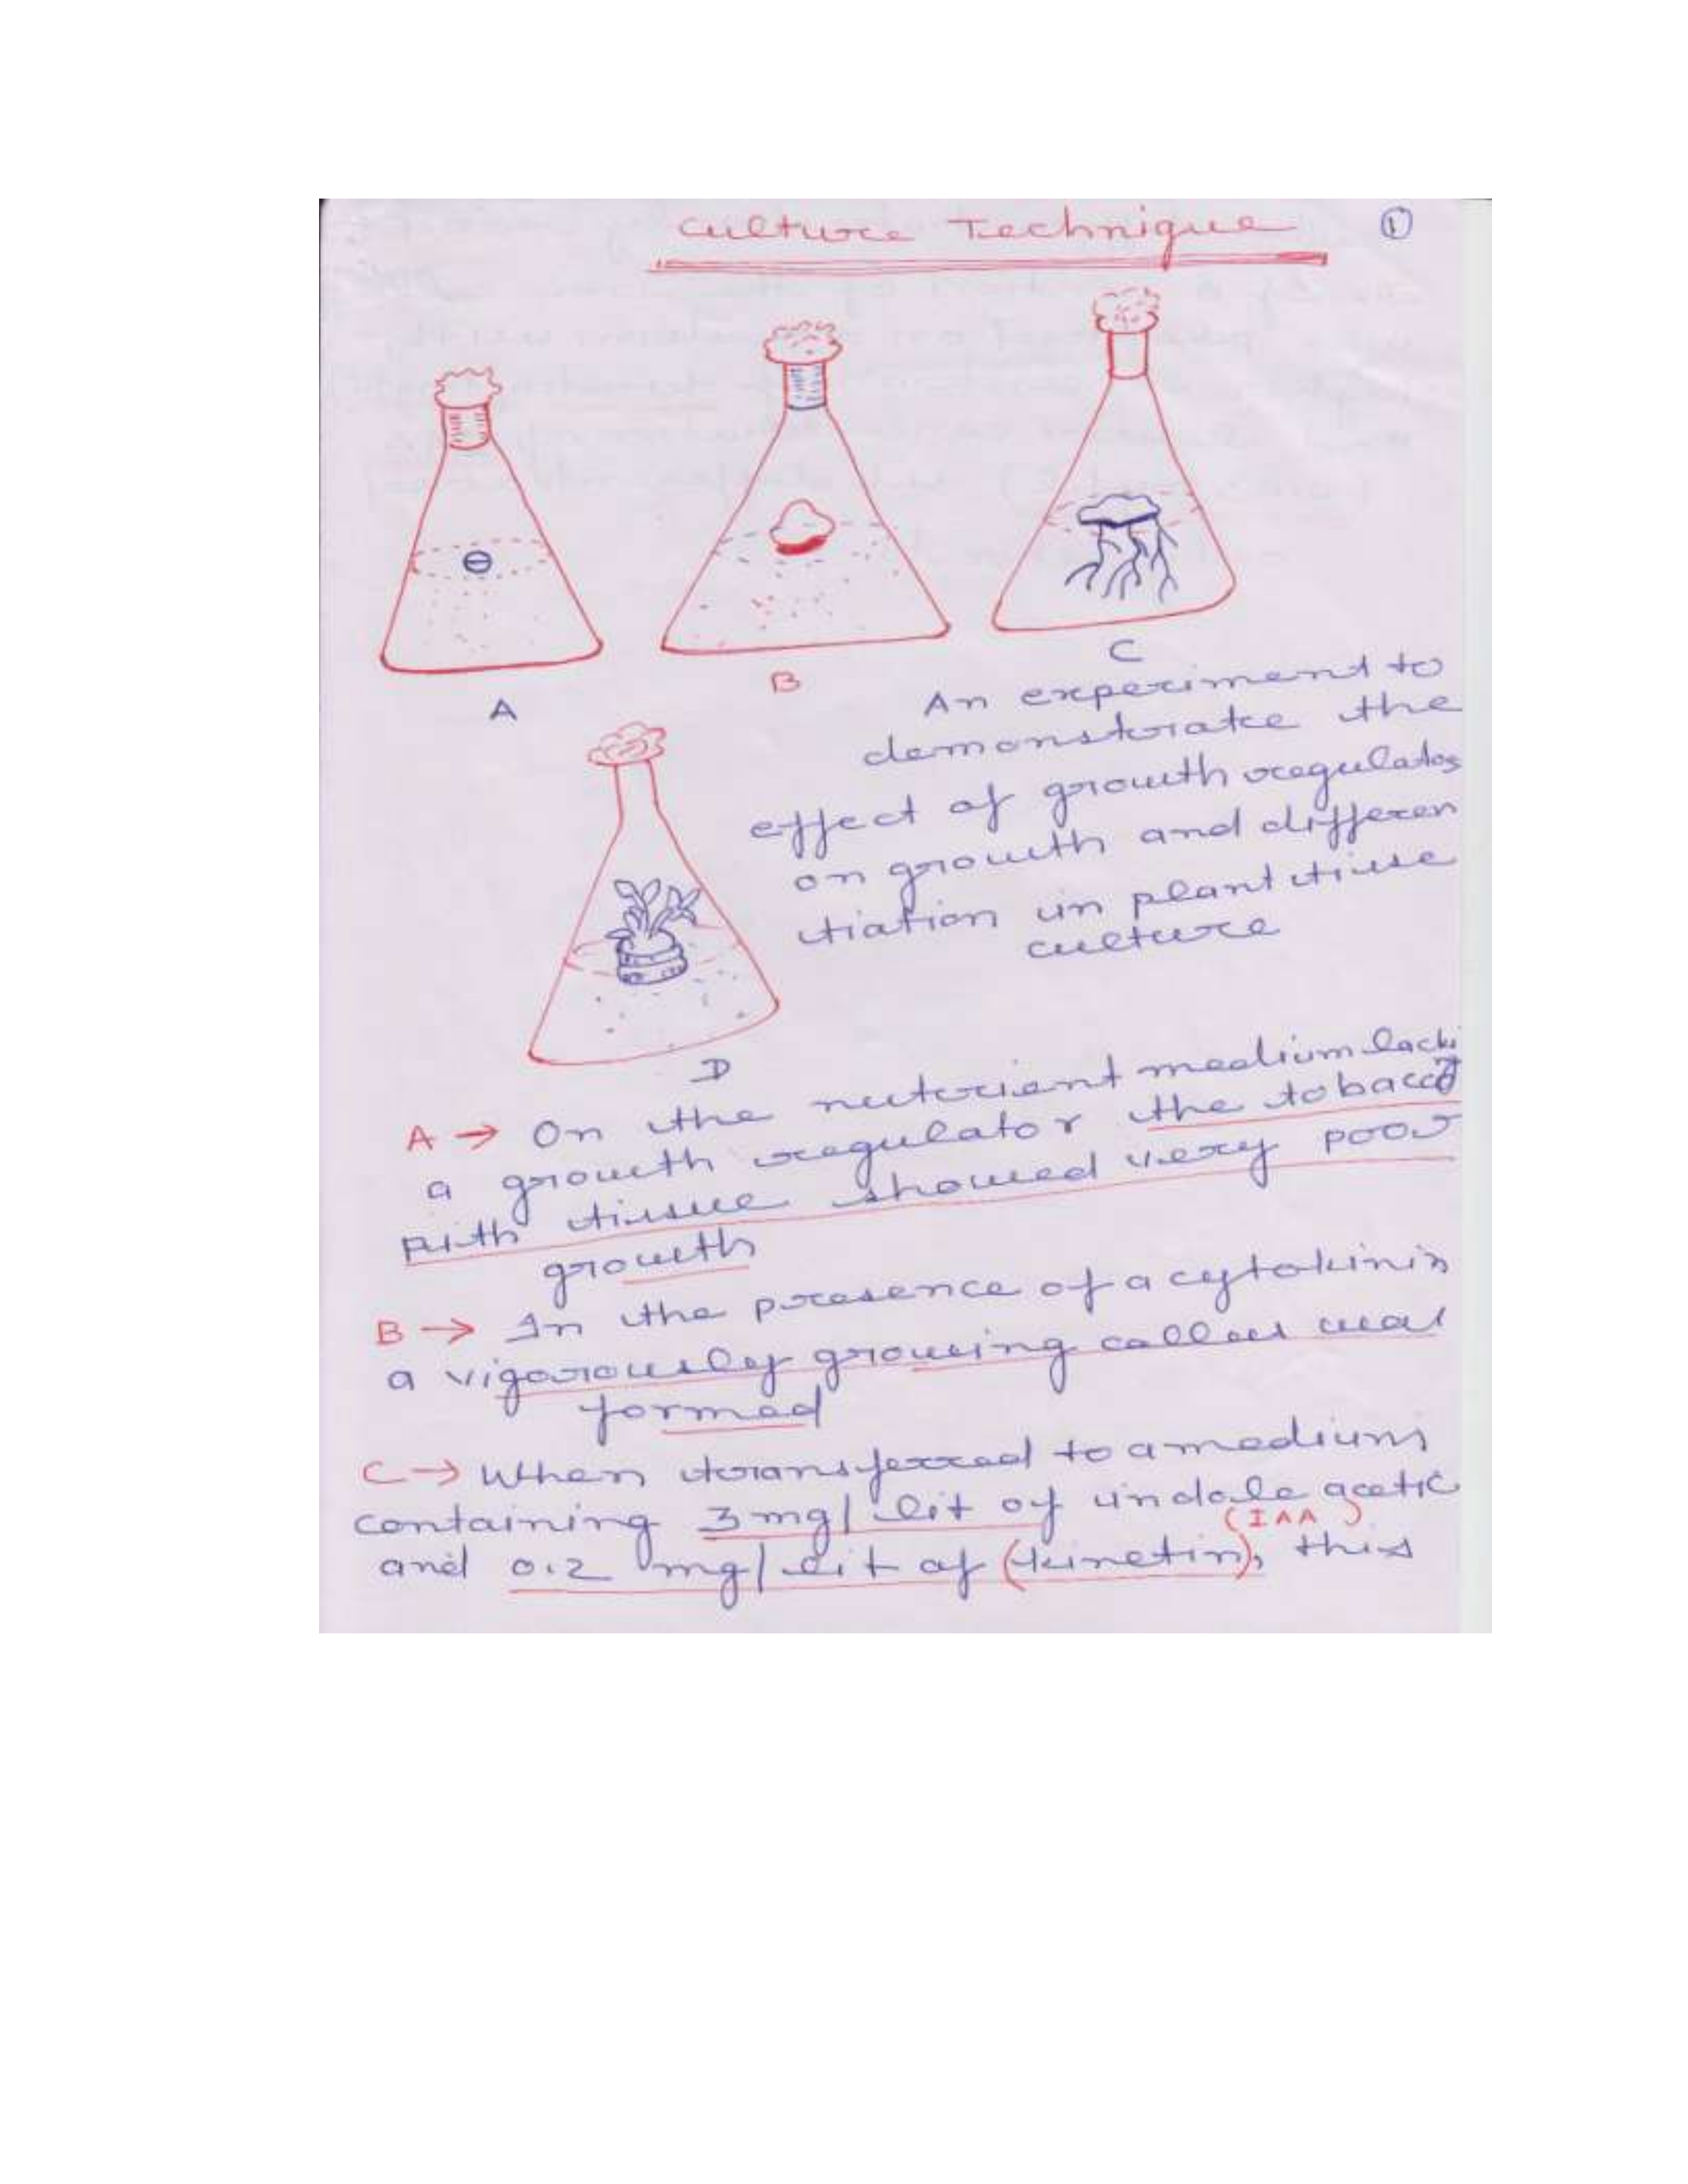 Culture Technique
1
A
B
C
An experiment to
demonstrate the
effect of growth regulators
on growth and differen
tiation in plant tissue
culture
D
A → On the nutrient medium lacking
a growth regulator the tobacco
pith tissue showed very poor
growth
B → In the presence of a cytokinin
a vigorously growing callus was
formed
C → When transferred to a medium
containing 3 mg/ lit of indole acetic
(IAA)
and 0.2 mg/ lit of (kinetin), this